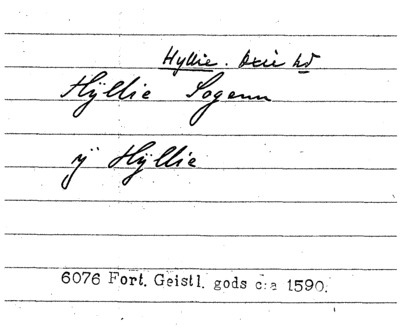 Hyllie. Oxie hd
Hÿllie Sogenn
ÿ Hÿllie
6076 Fort. Geistl. gods c:a 1590.